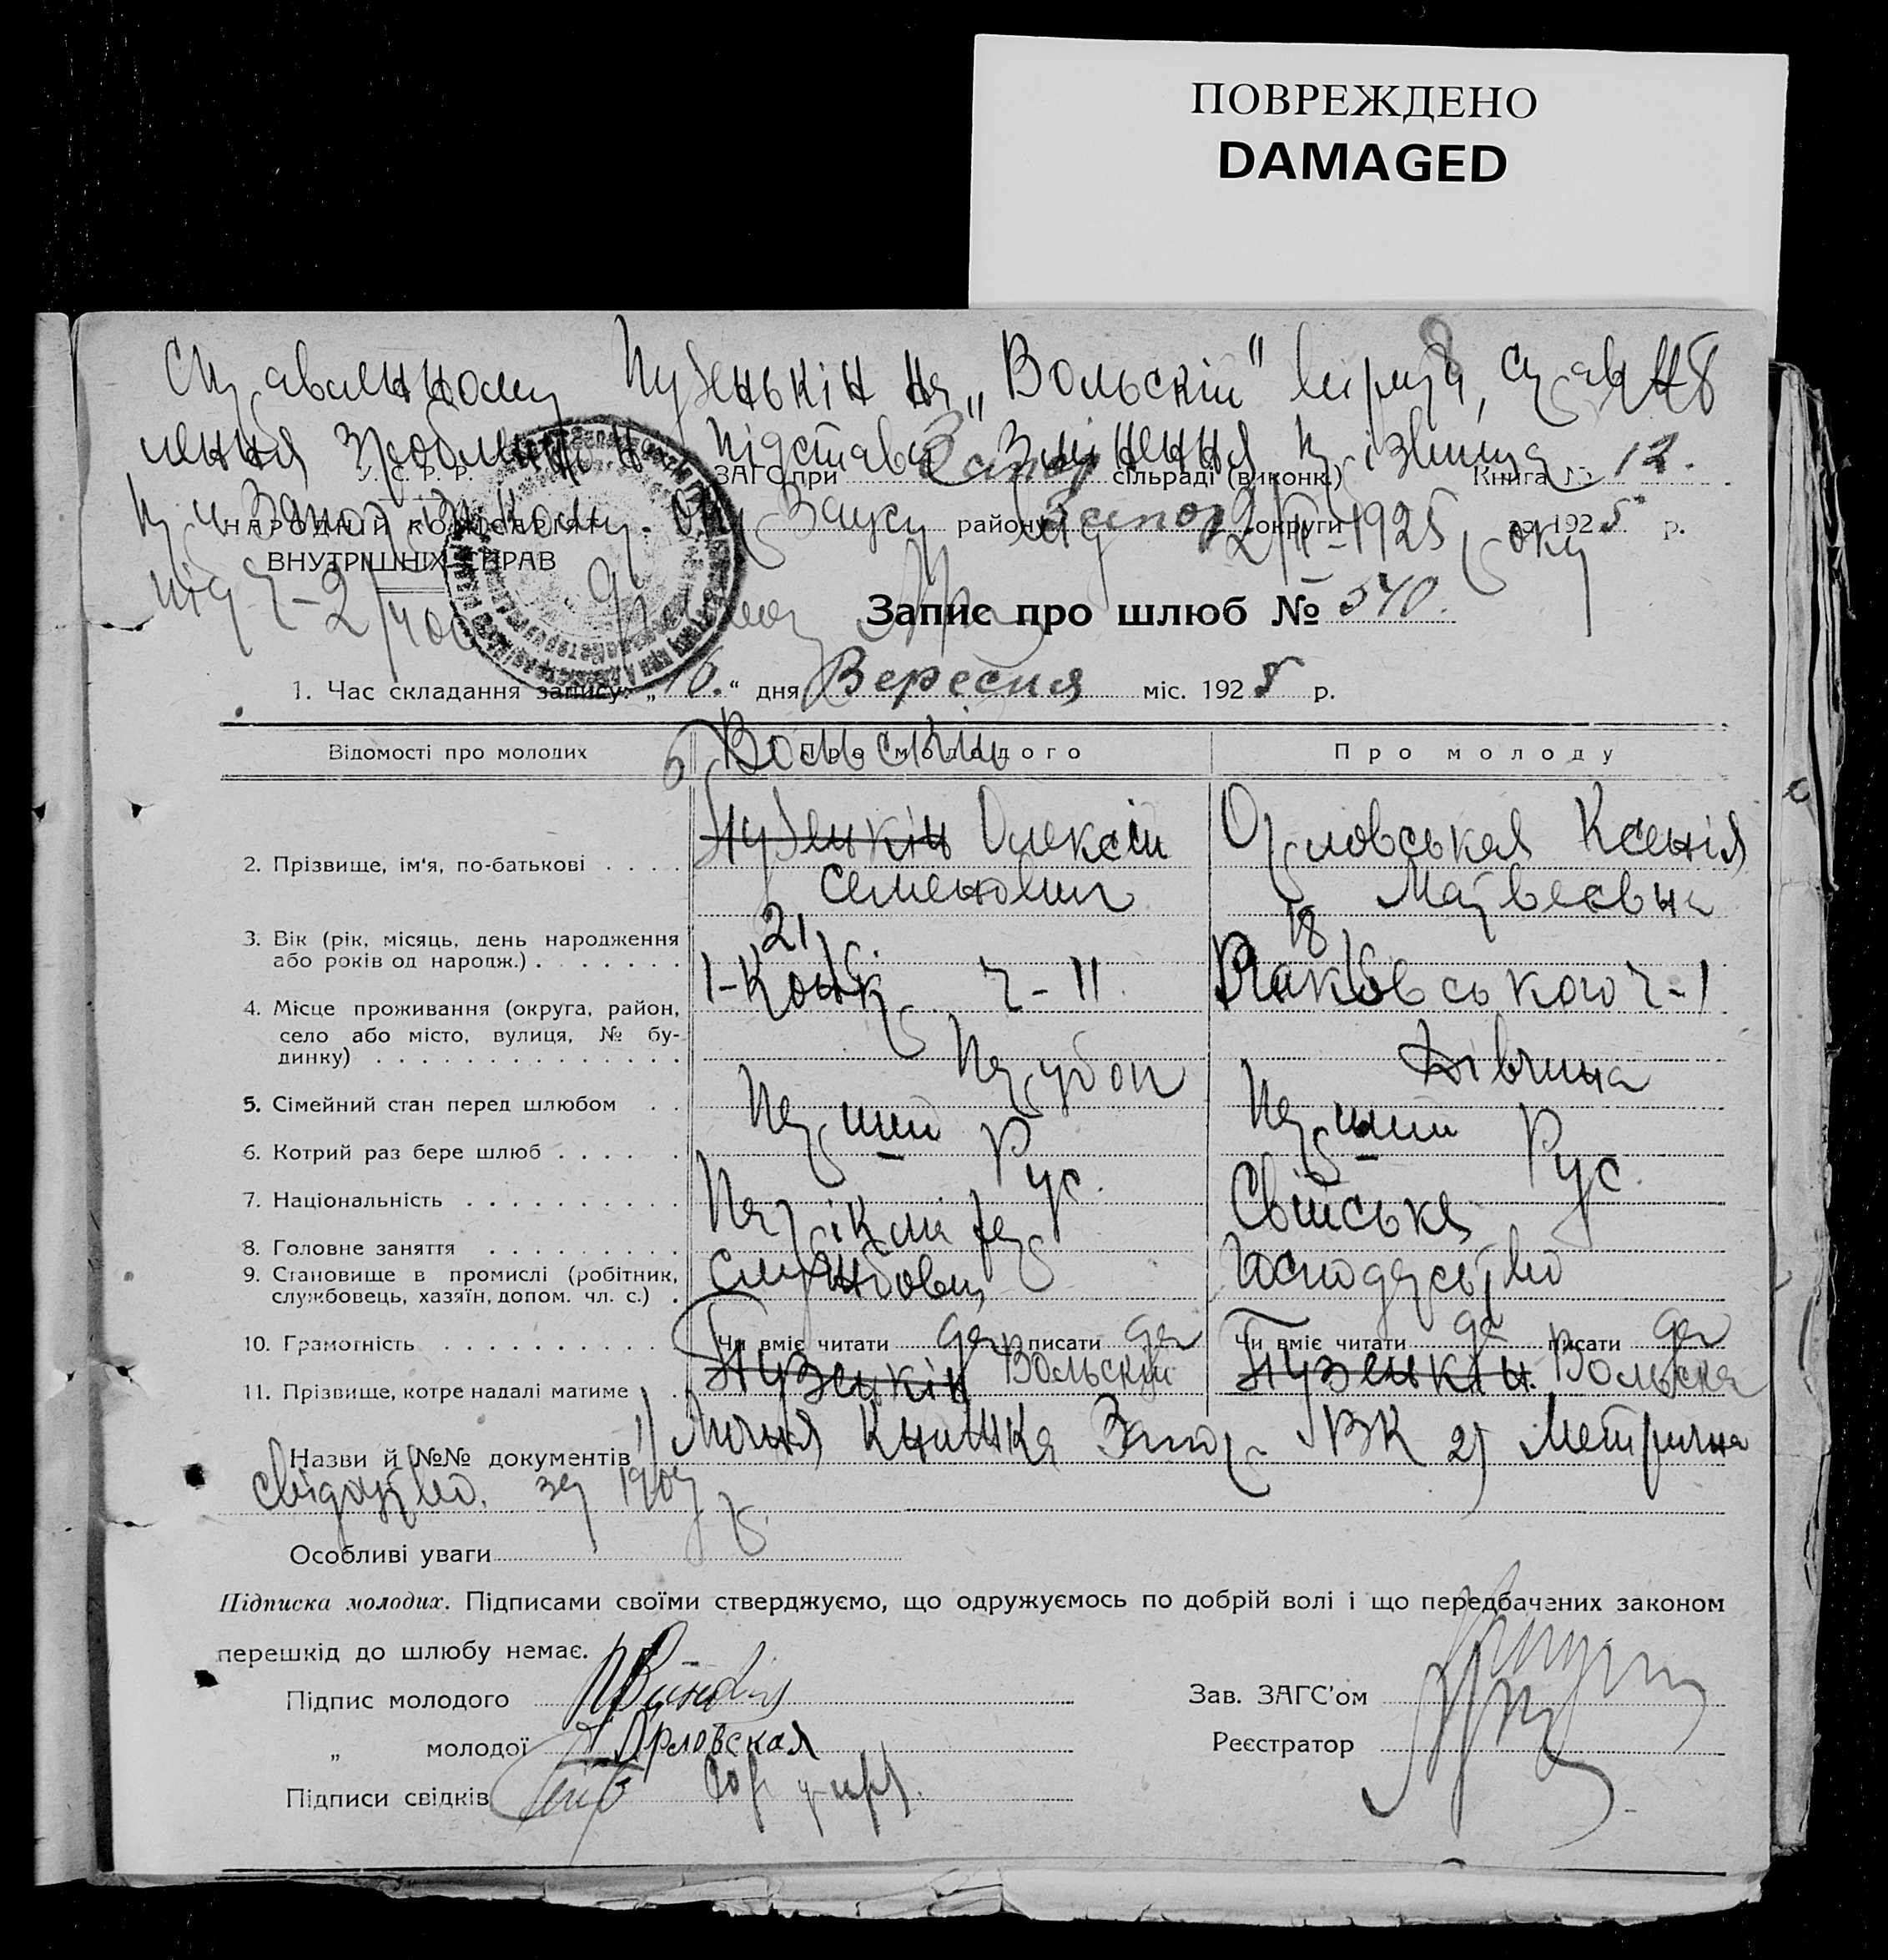 ПОВРЕЖДЕНО
DAMAGED
Пузенькін на „Вольскій" вірити,
зроблено на підставі змінення прізвища
У. С. Р. Р. ЗАГС при Запор сільраді (виконк.) Книга № 12.
НАРОДНІЙ КОМІСАРІЯТ району Запор округи за 1925 р.
ВНУТРІШНІХ СПРАВ від 2/II-1925 року
Запис про шлюб № 540.
1. Час складання запису: „16.“ дня Вересня міс. 1925 р.
Відомості про молодих Про молодого Про молоду
Вольскій
2. Прізвище, ім'я, по-батькові . . . . Пузенькін Олексій Орловськая Ксенія
Семенович Матвеєвна
3. Вік (рік, місяць, день народження 21 18
або років од народж.) . . . . . . .
4. Місце проживання (округа, район, ч-11 Раковського ч-1
село або місто, вулиця, № бу-
динку) . . . . . . . . . . . . . .
5. Сімейний стан перед шлюбом . . Парубок Дівчина
6. Котрий раз бере шлюб . . . . . Перший Перший
7. Національність . . . . . . . . . . Рус. Рус.
8. Головне заняття . . . . . . . . . Парікмахер Свійське
9. Становище в промислі (робітник, Службовец Господарство
службовець, хазяїн, допом. чл. с.) .
10. Грамотність . . . . . . . . . . . Чи вміє читати да писати да Чи вміє читати да писати да
11. Прізвище, котре надалі матиме . Пузенькін Вольскій Пузенькін. Вольская
Назви й №№ документів 1) Личная Книжка Запор. ВК 2) Метрична
свідоцтво. за 1907 р.
Особливі уваги
Підписка молодих. Підписами своїми стверджуємо, що одружуємось по добрій волі і що передбачених законом
перешкід до шлюбу немає.
Підпис молодого Зав. ЗАГС'ом
„ молодої Орловская Реєстратор
Підписи свідків